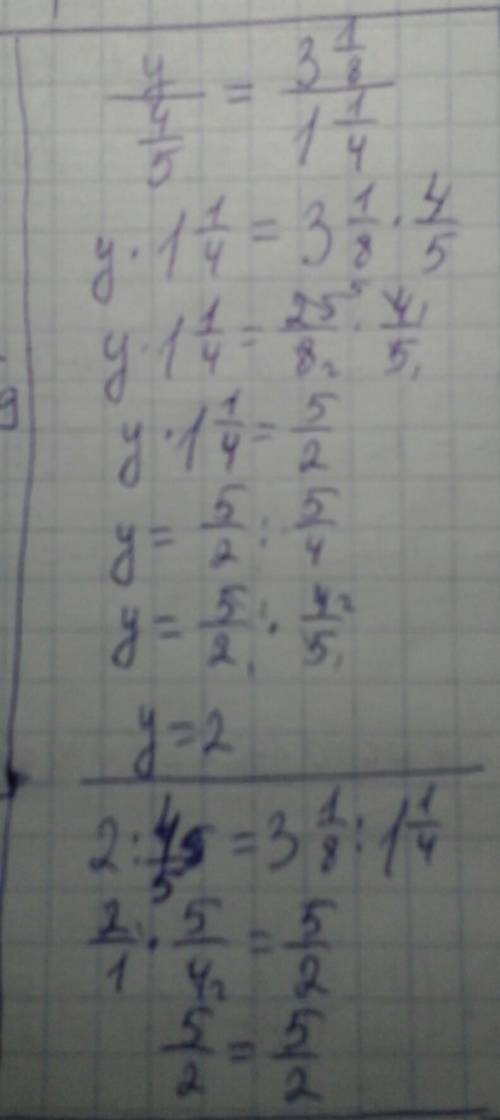 y / 4/5 = 3 1/8 / 1 1/4
y · 1 1/4 = 3 1/8 · 4/5
y · 1 1/4 = 25/8 · 4/5
y · 1 1/4 = 5/2
y = 5/2 : 5/4
y = 5/2 · 4/5
y = 2
2 : 4/5 = 3 1/8 : 1 1/4
2/1 · 5/4 = 5/2
5/2 = 5/2